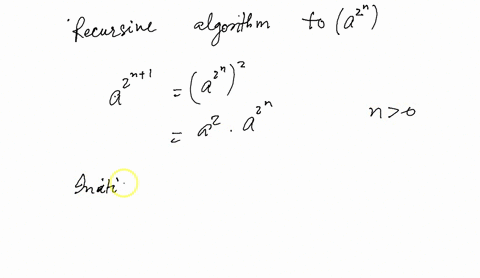 Recursive algorithm to (a^{2^n})
a^{2^{n+1}} = (a^{2^n})^2
= a^2 · a^{2^n} n>0
Initi